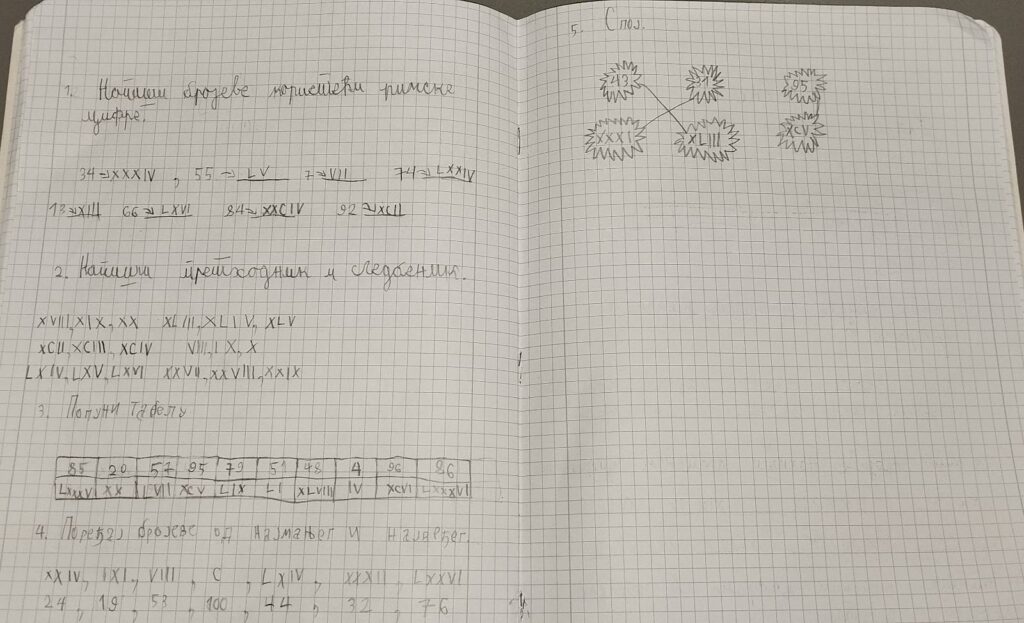 1. Напиши бројеве користећи римске
цифре.
34⇒XXXIV, 55⇒LV 7⇒VII 74⇒LXXIV
13⇒XIII 66⇒LXVI 84⇒XXCIV 92⇒XCII
2. Напиши претходник и следбеник.
XVIII, XIX, XX XLIII, XLIV, XLV
XCII, XCIII, XCIV VIII, IX, X
LXIV, LXV, LXVI XXVII, XXVIII, XXIX
3. Попуни табелу
85 20 57 95 79 51 48 4 96 86
LXXXV XX LVII XCV LIX LI XLVIII IV XCVI LXXXVI
4. Поређај бројеве од најмањег и највећег.
XXIV, IXI, VIII, C, LXIV, XXXII, LXXVI
24, 19, 53, 100, 44, 32, 76
5. Спој.
43 31 95
XXXI XLIII XCV